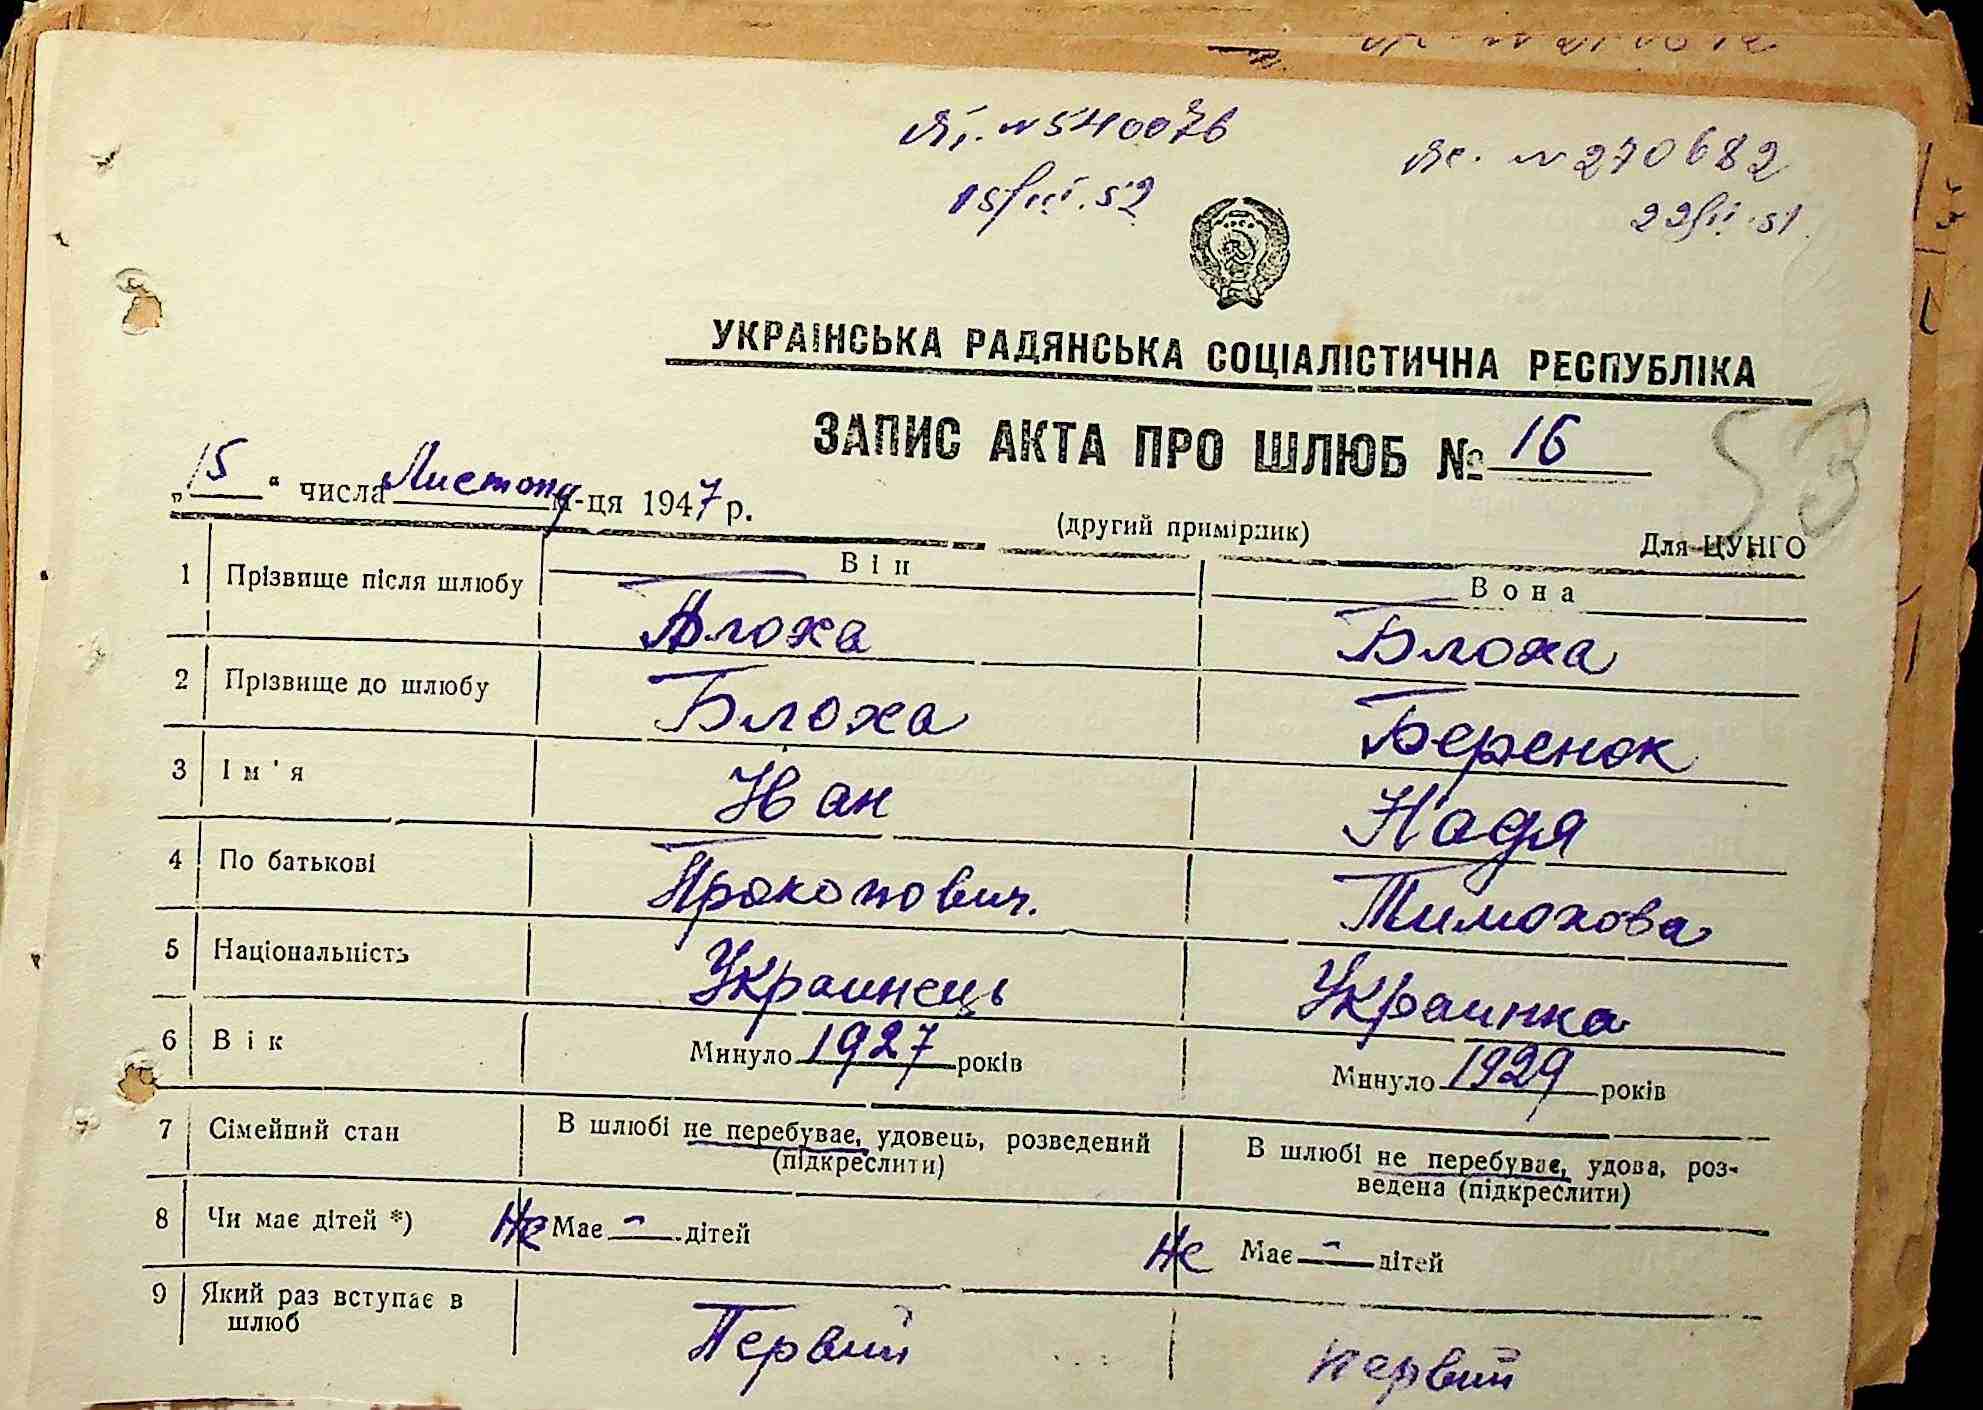 №540076
№270682
15/III.52
22/II 51.
УКРАЇНСЬКА РАДЯНСЬКА СОЦІАЛІСТИЧНА РЕСПУБЛІКА
ЗАПИС АКТА ПРО ШЛЮБ № 16
53
„15“ числа Листопу м-ця 1947 р.
(другий примірник)
Для ЦУНГО
Він
Вона
1 Прізвище після шлюбу Блоха Блоха
2 Прізвище до шлюбу Блоха Беренок
3 Ім'я Иван Надя
4 По батькові Прокопович. Тимохова
5 Національність Украинець Украинка
6 Вік Минуло 1927 років Минуло 1929 років
7 Сімейний стан В шлюбі не перебуває, удовець, розведений (підкреслити) В шлюбі не перебуває, удова, роз-
ведена (підкреслити)
8 Чи має дітей *) Не Має - дітей Не Має - дітей
9 Який раз вступає в шлюб Первий первий